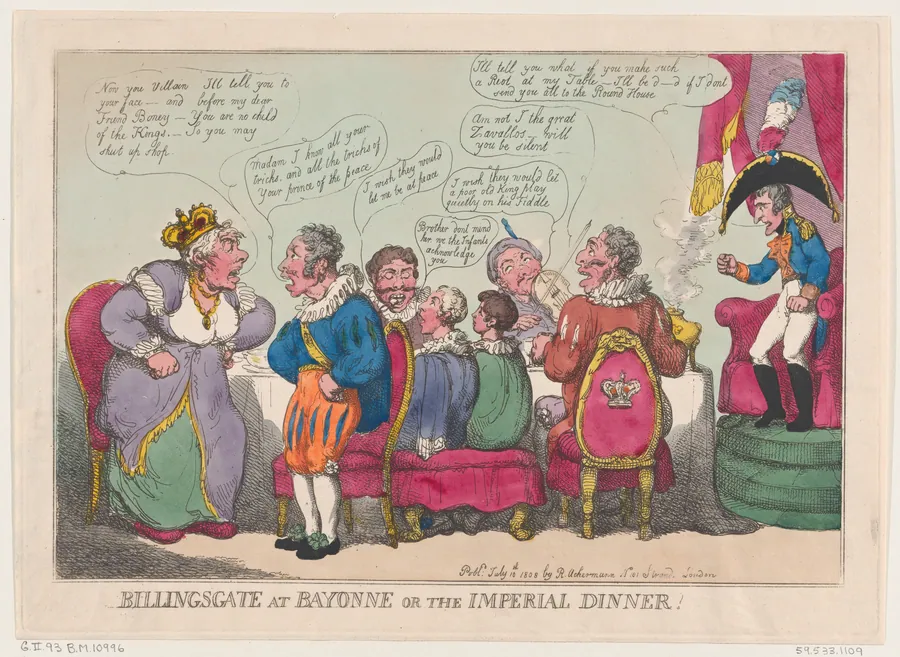 Now you Villain I'll tell you to
your face — and before my dear
Friend Boney — You are no child
of the Kings. — So you may
shut up shop.
Madam I know all your
tricks. and all the tricks of
Your prince of the peace
I wish they would
let me be at peace
Brother dont mind
her we the Infants
acknowledge
you
I wish they would let
a poor old King play
quietly on his Fiddle
Am not I the great
Zavallos — will
you be silent
I'll tell you what if you make such
a Riot at my Table — I'll be d—d if I dont
send you all to the Round House
Publ. July 10th 1808 by R. Ackermann No 101 Strand, London
BILLINGSGATE AT BAYONNE OR THE IMPERIAL DINNER!
G.II.93 B.M.10996
59.533.1109